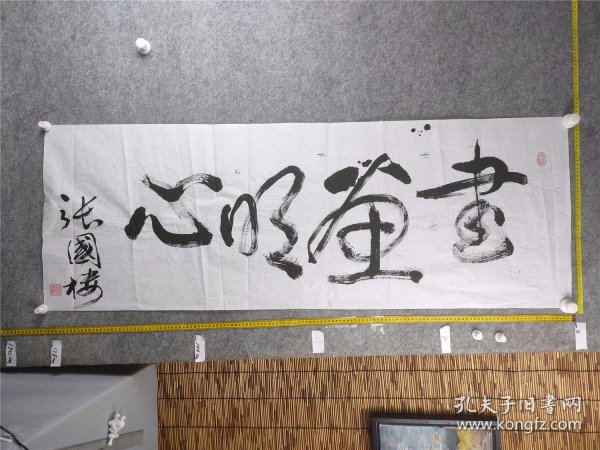 書画明心
張國楼
孔夫子旧书网
www.kongfz.com